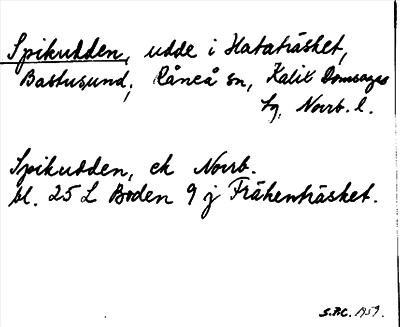 Spikudden, udde i Hataträsket,
Bastusund, Råneå sn, Kalix Domsagas
tg, Norrb. l.
Spikudden, ek Norrb.
bl. 25 L Boden 9 j Fräkenträsket.
S.P.C. 1959.